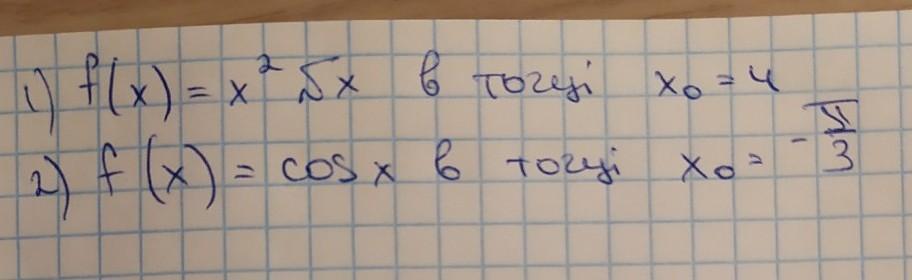 1) f(x) = x² √x в точці x₀ = 4
2) f(x) = cos x в точці x₀ = -π/3